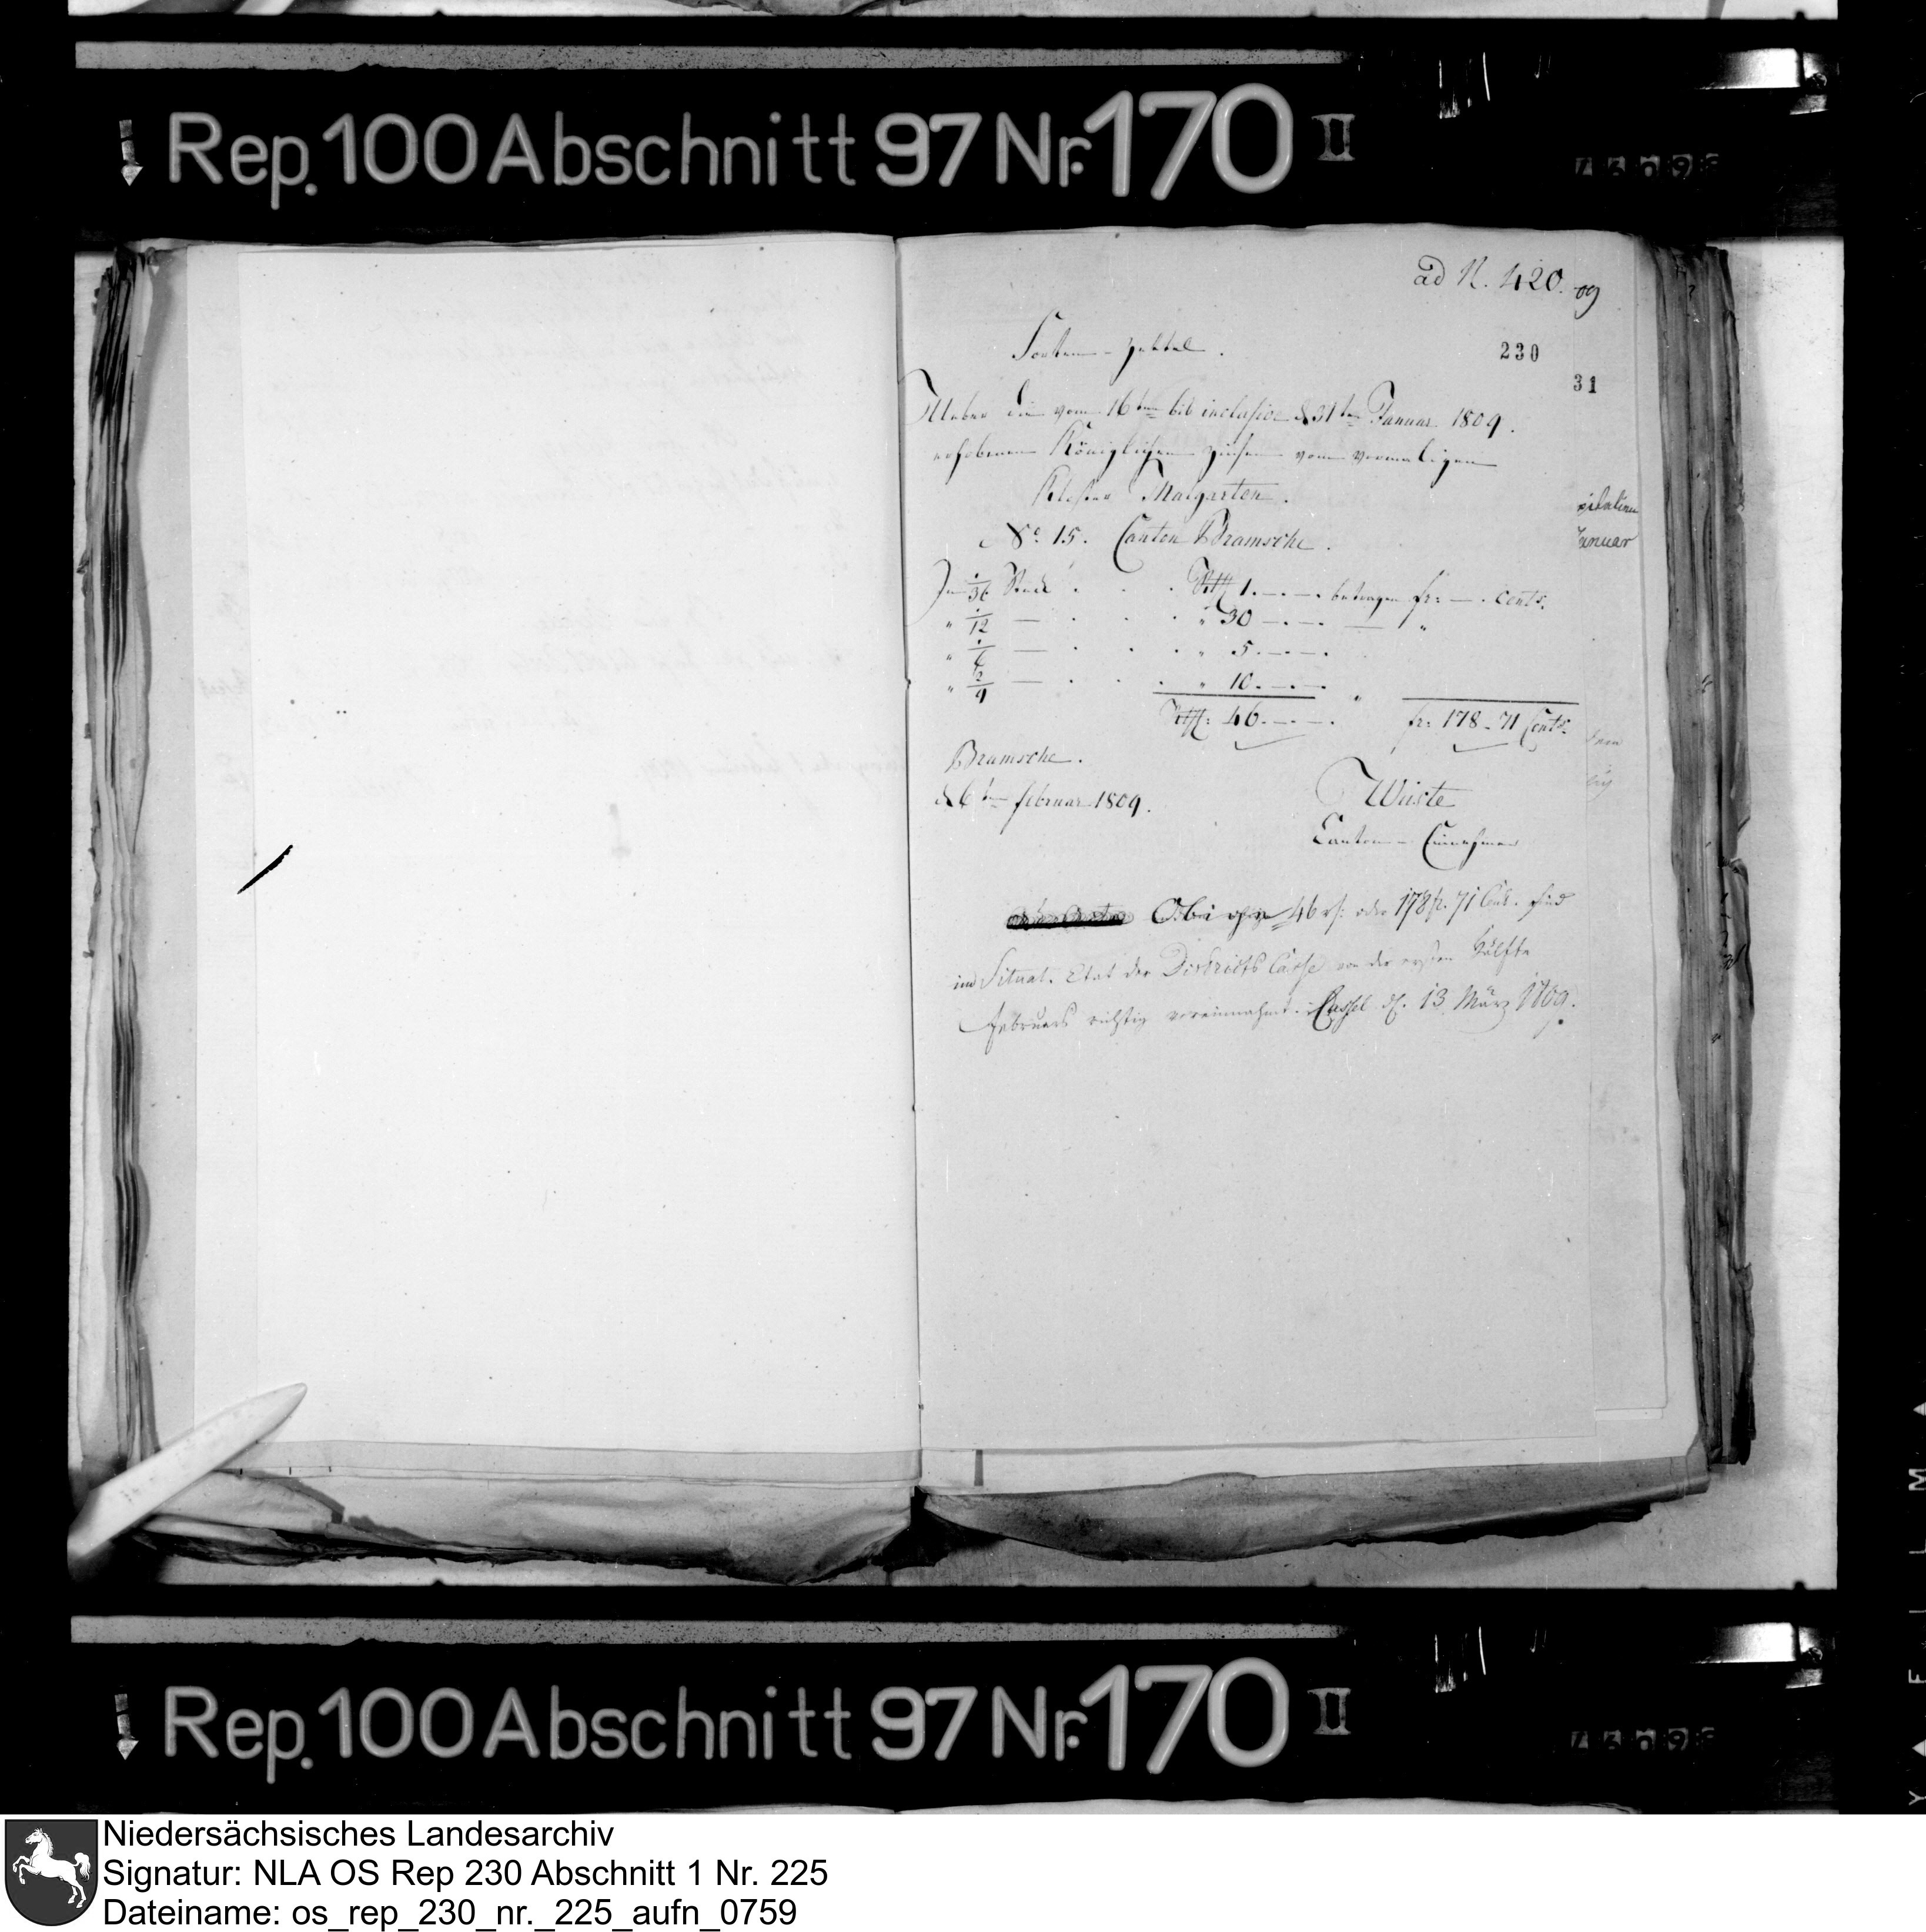 Rep. 100 Abschnitt 97 Nr. 170 II
ad N. 420. 09
Sorten-Zettel.
230
31
Ueber die vom 16ten bis inclusive d 31ten Januar 1809.
erhobenen Königlichen Zinsen vom vormaligen
Kloster Malgarten.
No. 15. Canton Bramsche.
Januar
In 1/36 Stück . . . Rthl 1. — . — . betragen fr: — . cents.
" 1/12 — . . . " 30 — . — . — "
" 1/6 — . . . " 5. — . — .
" 2/9 — . . . " 10. — . — .
Rthl: 46. — . — . " fr: 178 - 71 Cents.
Bramsche.
d 6ten Februar 1809.
Wüste
Canton-Einnehmer
Obige 46 rt: oder 178 fr. 71 Cent. sind
im Situat. Etat der Districts Casse von der ersten Hälfte
Februars richtig vereinnahmt. Cassel d. 13 März 1809.
Rep. 100 Abschnitt 97 Nr. 170 II
Niedersächsisches Landesarchiv
Signatur: NLA OS Rep 230 Abschnitt 1 Nr. 225
Dateiname: os_rep_230_nr._225_aufn_0759